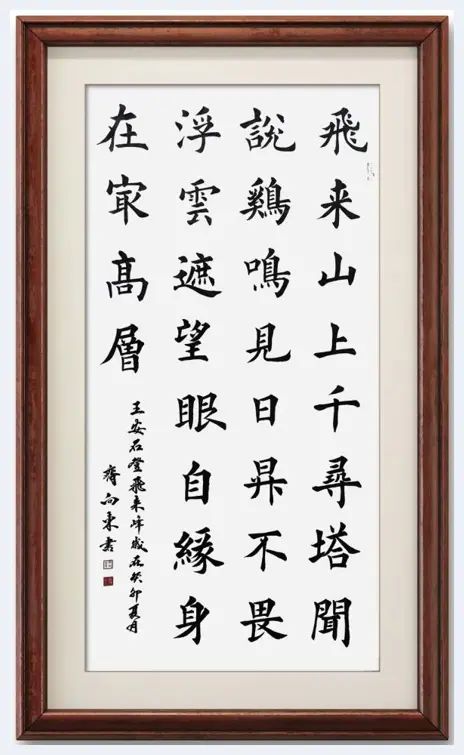 飛来山上千尋塔聞
說鷄鳴見日昇不畏
浮雲遮望眼自緣身
在㝡高層
王安石登飛来峰歲在癸卯夏月
齊向東書